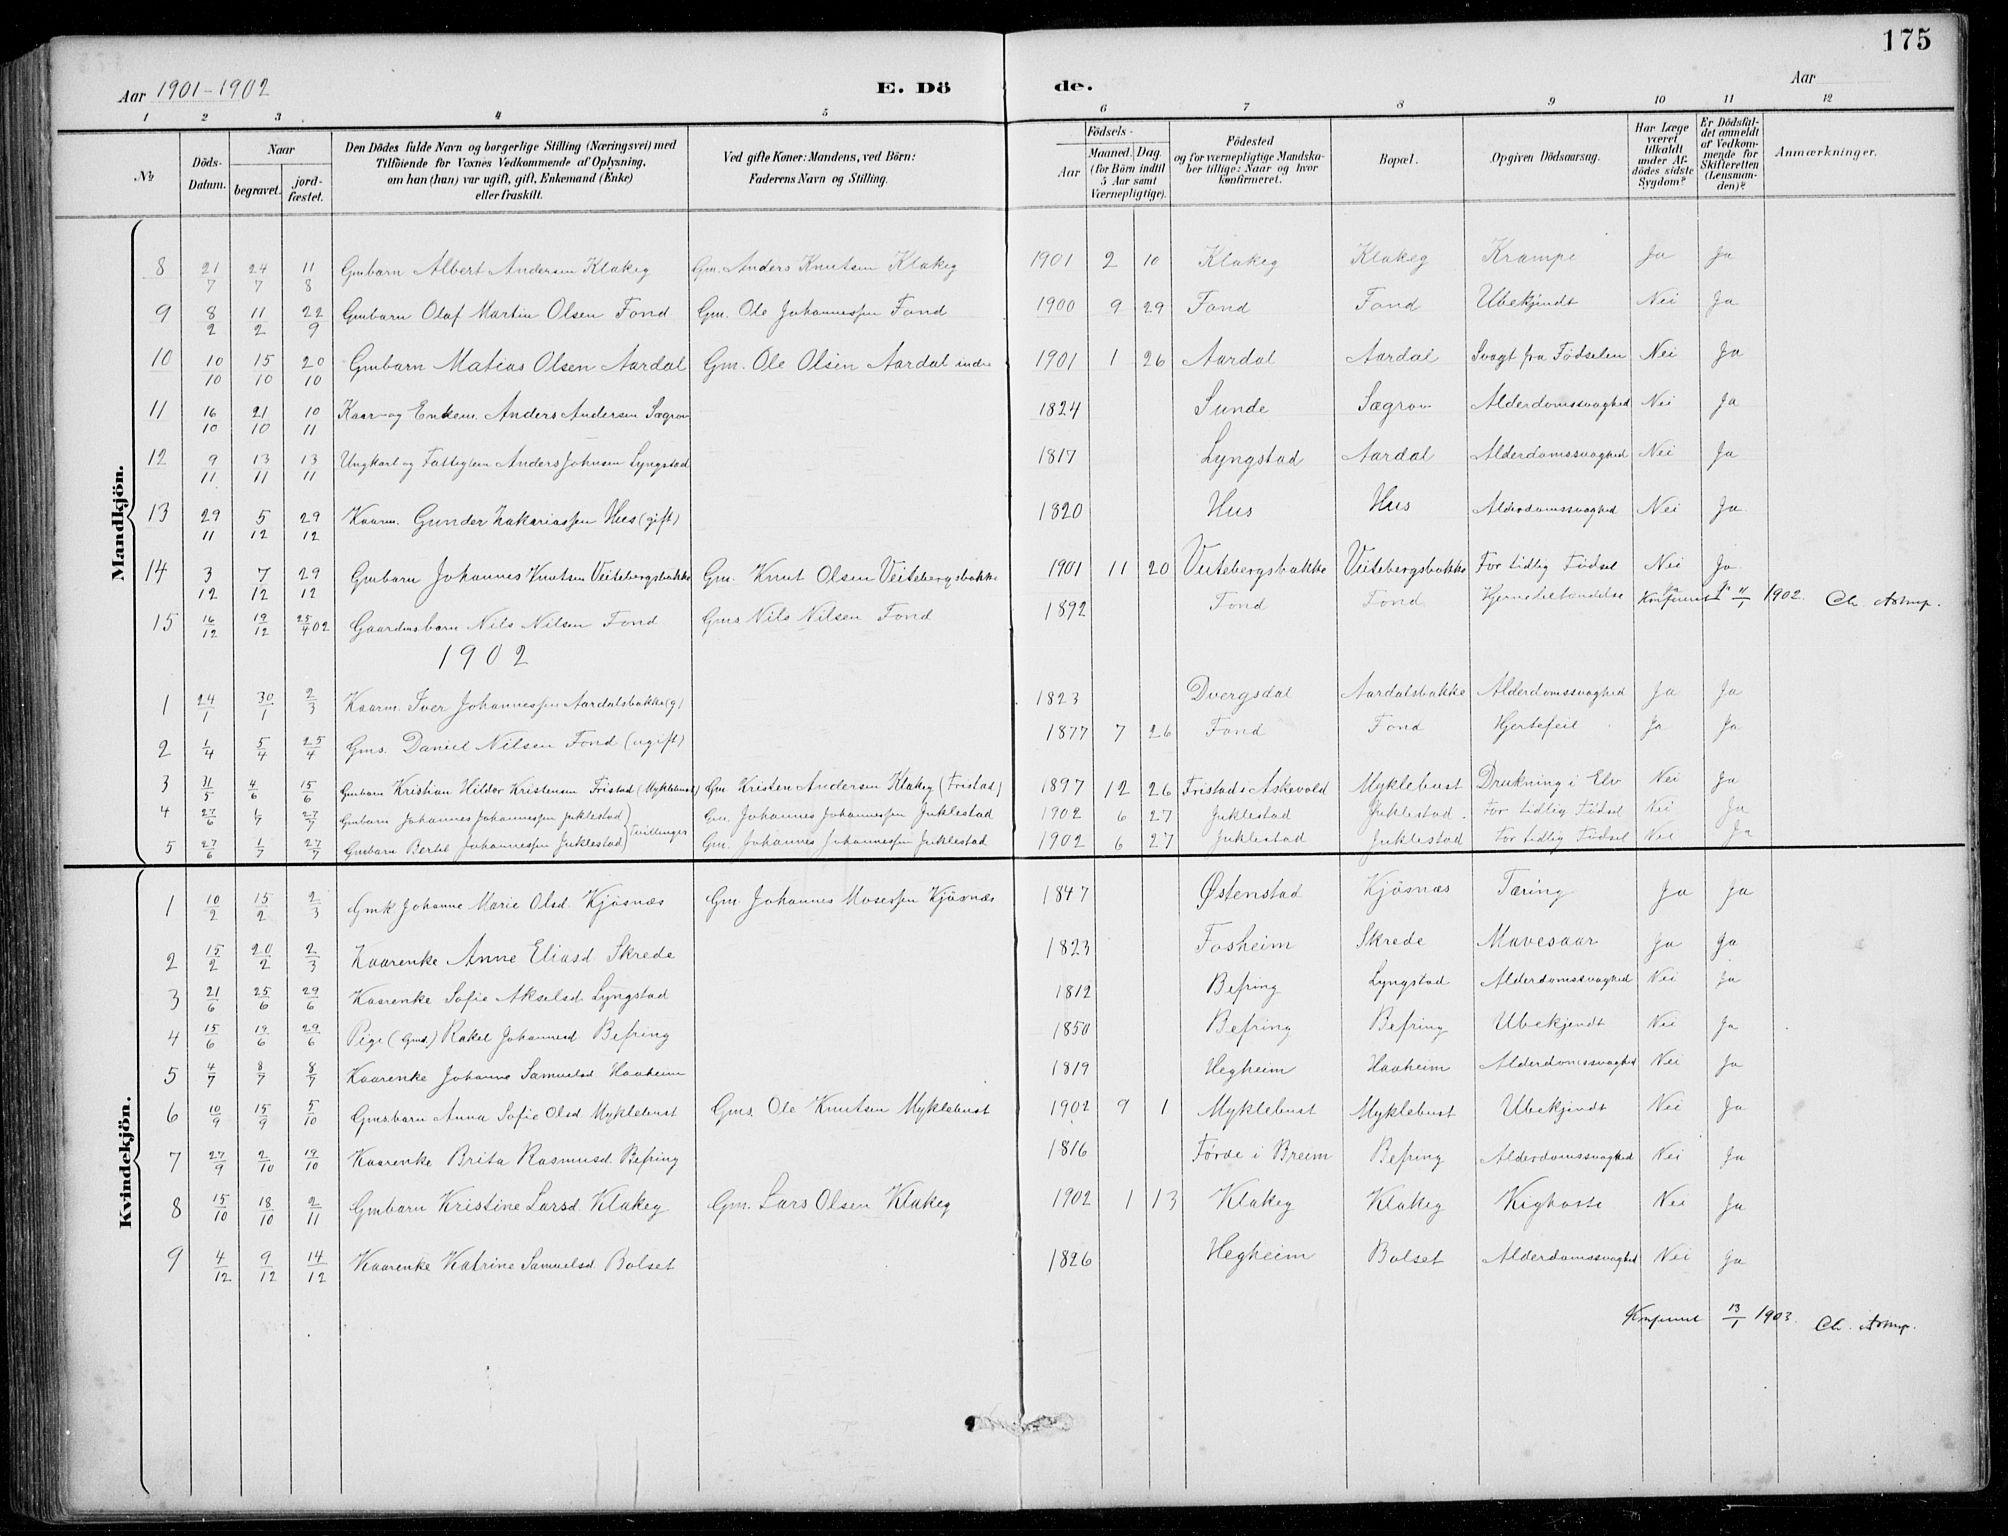 175
Aar 1901-1902 E. Dö de. Aar
1 2 3 4 5 6 7 8 9 10 11 12
No
Döds-Datum.
Naar
begravet.
jord-fæstet.
Den Dödes fulde Navn og borgerlige Stilling (Næringsvei) med
Tilföiende for Voxnes Vedkommende af Oplysning,
om han (hun) var ugift, gift, Enkemand (Enke)
eller fraskilt.
Ved gifte Koner: Mandens, ved Börn:
Faderens Navn og Stilling.
Födsels-
Aar
Maaned. Dag.
(for Börn indtil
5 Aar samt
Værnepligtige).
Födested
og for værnepligtige Mandska-
ber tillige: Naar og hvor
konfirmeret.
Bopæl.
Opgiven Dödsaarsag.
Har Læge
været
tilkaldt
under Af-
dödes sidste
Sygdom?
Er Dödsfal-
det anmeldt
af Vedkom-
mende for
Skifteretten
(Lensman-
den)?
Anmærkninger.
Mandkjön.
8 21/7 24/7 11/8 Gmbarn Albert Andersen Klakeg Gm. Anders Knutsen Klakeg 1901 2 10 Klakeg Klakeg Krampe Ja Ja
9 8/2 11/2 22/9 Gmbarn Olaf Martin Olsen Fond Gm. Ole Johannessen Fond 1900 9 29 Fond Fond Ubekjendt Nei Ja
10 10/10 15/10 20/10 Gmbarn Matias Olsen Aardal Gm. Ole Olsen Aardal indre 1901 1 26 Aardal Aardal Svagt fra Fødselen Nei Ja
11 16/10 21/10 10/11 Kaar- og Enkem. Anders Andersen Sægrov 1824 Sunde Sægrov Alderdomssvaghed Nei Ja
12 9/11 13/11 13/11 Ungkarl og Fattiglem Anders Johnsen Lyngstad 1817 Lyngstad Aardal Alderdomssvaghed Nei Ja
13 29/11 5/12 29/12 Kaarm. Gunder Zakariassen Hus (gift) 1820 Hus Hus Alderdomssvaghed Nei Ja
14 3/12 7/12 29/12 Gmbarn Johannes Knutsen Veitebergsbakke Gm. Knut Olsen Veitebergsbakke 1901 11 20 Veitebergsbakke Veitebergsbakke For tidlig Fødsel Nei Ja
15 16/12 19/12 25/4 02 Gaardmsbarn Nils Nilsen Fond Gms Nils Nilsen Fond 1892 Fond Fond Hjernebetændelse Ja Ja
Konfereret 11/1 1902. Ch. Astrup.
1902
1 24/1 30/1 2/3 Kaarm. Iver Johannessen Aardalsbakke (g) 1823 Dvergsdal Aardalsbakke Alderdomssvaghed Ja Ja
2 1/4 5/4 25/4 Gms. Daniel Nilsen Fond (ugift) 1877 7 26 Fond Fond Hjertefeil Ja Ja
3 31/5 4/6 15/6 Gmbarn Kristian Hildor Kristensen Fristad (Myklebust) Gm Kristen Andersen Klakeg (Fristad) 1897 12 26 Fristad i Askevold Myklebust Drukning i Elv Nei Ja
4 27/6 1/7 27/7 Gmbarn Johannes Johannessen Juklestad } Tvillinger Gm. Johannes Johannessen Juklestad 1902 6 27 Juklestad Juklestad For tidlig Fødsel Nei Ja
5 27/6 1/7 27/7 Gmbarn Bertel Johannessen Juklestad Gm. Johannes Johannessen Juklestad 1902 6 27 Juklestad Juklestad For tidlig Fødsel Nei Ja
Kvindekjön.
1 10/2 15/2 2/3 Gmk Johanne Marie Olsd. Kjøsnæs Gm. Johannes Mosessen Kjøsnæs 1847 Østenstad Kjøsnæs Tæring Ja Ja
2 15/2 20/2 2/3 Kaarenke Anne Eliasd Skrede 1823 Fosheim Skrede Mavesaar Ja Ja
3 21/6 25/6 29/6 Kaarenke Sofie Akselsd Lyngstad 1812 Befring Lyngstad Alderdomssvaghed Nei Ja
4 15/6 19/6 29/6 Pige (Gmd) Rakel Johannesd Befring 1850 Befring Befring Ubekjendt Nei Ja
5 4/7 8/7 8/7 Kaarenke Johanne Samuelsd Haaheim 1819 Hegheim Haaheim Alderdomssvaghed Nei Ja
6 10/9 15/9 5/10 Gmsbarn Anna Sofie Olsd Myklebust Gms. Ole Knutsen Myklebust 1902 9 1 Myklebust Myklebust Ubekjendt Nei Ja
7 27/9 2/10 19/10 Kaarenke Brita Rasmusd. Befring 1816 Førde i Breim Befring Alderdomssvaghed Nei Ja
8 15/10 18/10 2/11 Gmbarn Kristine Larsd. Klakeg Gm. Lars Olsen Klakeg 1902 1 13 Klakeg Klakeg Kighoste Nei Ja
9 4/12 9/12 14/12 Kaarenke Katrine Samuelsd Bolset 1826 Hegheim Bolset Alderdomssvaghed Nei Ja
Konfereret 13/1 1903. Ch. Astrup.